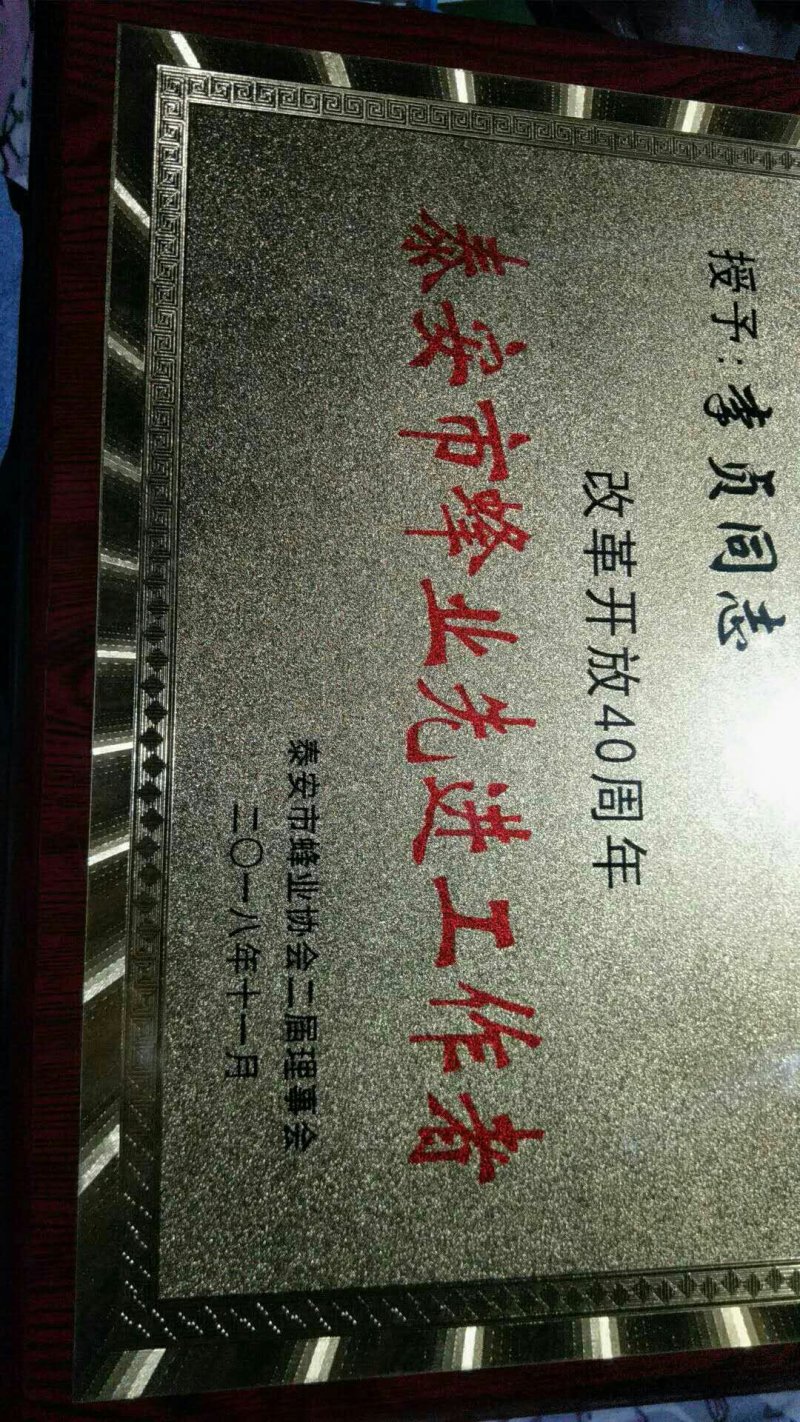 授予：李贞同志
改革开放40周年
泰安市蜂业先进工作者
泰安市蜂业协会二届理事会
二〇一八年十一月